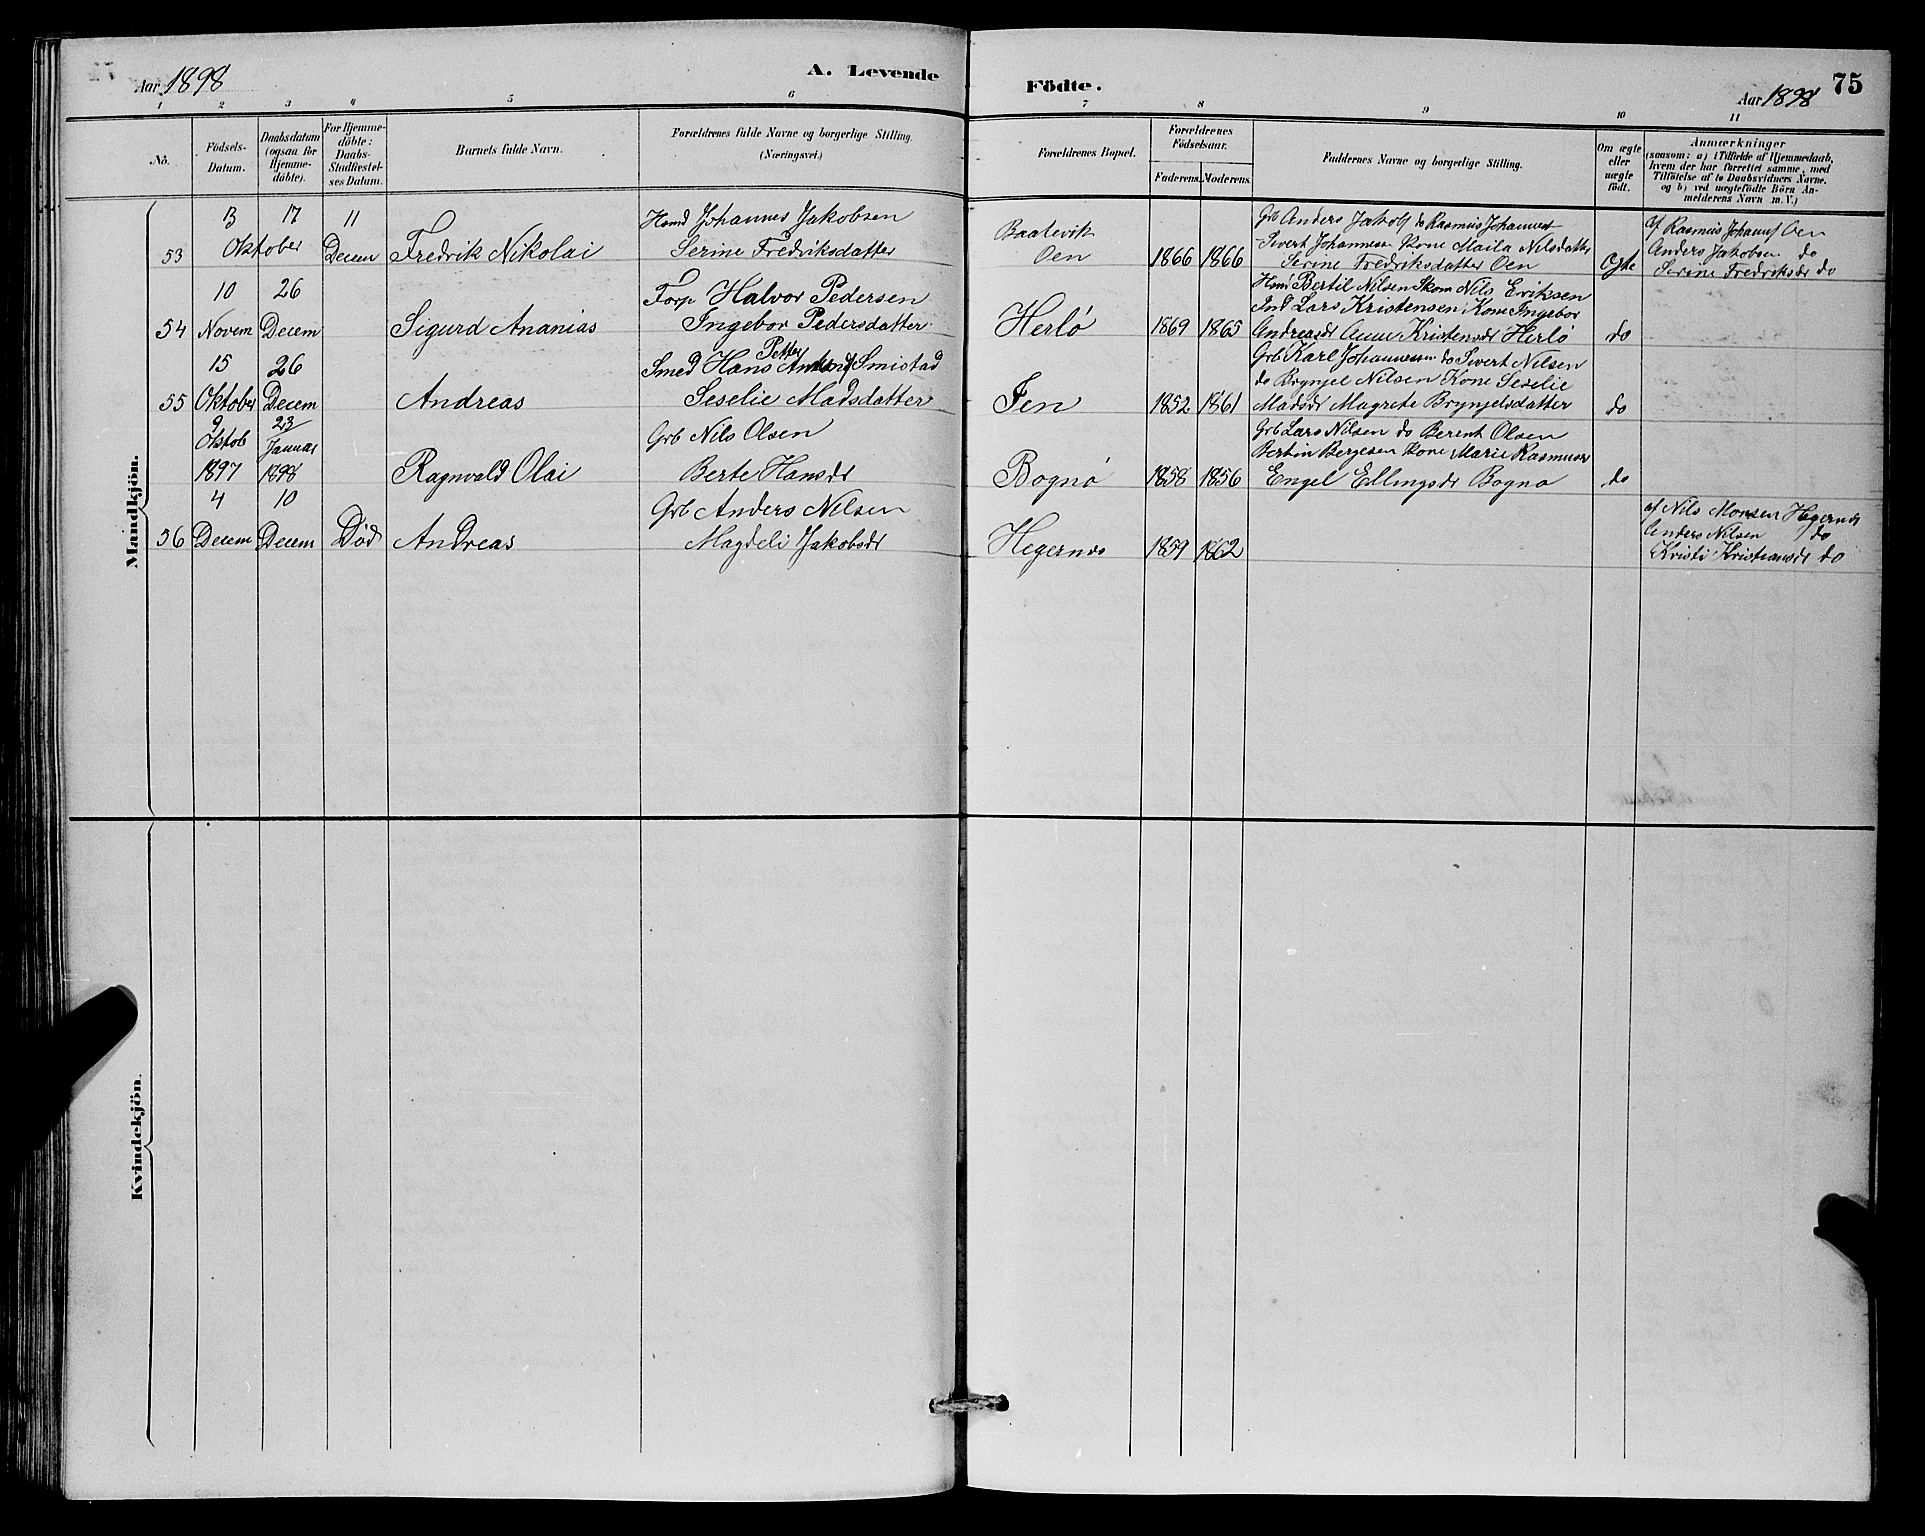 Aar 1898
A. Levende
1 2 3 4 5 6
No.
Födsels-
Datum.
Daabsdatum
(ogsaa for
Hjemme-
döbte).
For Hjemme-
döbte:
Daabs-
Stadfæstel-
ses Datum.
Barnets fulde Navn.
Forældrenes fulde Navne og borgerlige Stilling.
(Næringsvei.)
Mandkjön.
13 17 11 Johannes Jakobsen
53 Oktober Decem Fredrik Nikolai Serine Fredriksdatter
10 26 Forp Halvor Pedersen
54 Novem Decem Sigurd Ananias Ingebor Pedersdatter
Petter
15 26 Smed Hans Smistad
55 Oktober Decem Andreas Seselie Madsdatter
9 23
Oktob Januar Grb Nils Olsen
1897 1898 Ragnvald Olai Berte Hansdr
4 10 Grb Anders Nilsen
56 Decem Decem Død Andreas Magdeli Jakobsdr
Kvindekjön.
Födte.
75
Aar 1898
7 8 9 10 11
Forældrenes Bopæl.
Forældrenes
Födselsaar.
Faderens. Moderens.
Faddernes Navne og borgerlige Stilling.
Om ægte
eller
uægte
födt.
Anmærkninger
(saasom: a) i Tilfælde af Hjemmedaab,
hvem der har forrettet samme, med
Tilföielse af to Daabsvidners Navne,
og b) ved uægtefödte Börn An-
melderens Navn m. V.)
Baatevik
Oen 1866 1866
Grb Anders Jakobs do Rasmus Johannes
Sivert Johannesen Kone Maila Nilsdatter
Serine Fredriksdatter Oen
Ægte
af Rasmus Johans Oen
Anders Jakobsen do
Serine Fredriksdr do
Herlø 1869 1865
Bertil Nilsen Skom Nils Eriksen
Ind Lars Kristensen Kone Ingebor
Andreasdr Anne Kristensdr Herlø
do
Fen 1852 1861
Grb Karl Johannessen do Sivert Nilsen
do Brynjel Nilsen Kone Seselie
Madsdr Magrete Brynjelsdatter
do
Bognø 1858 1856
Grb Lars Nilsen do Berent Olsen
Bertin Bergesen Kone Marie Rasmusdr
Engel Ellingsdr Bognø
do
Hegernes 1859 1862
af Nils Monsen Hegernes
Anders Nilsen do
Kristi Kristiansdr do